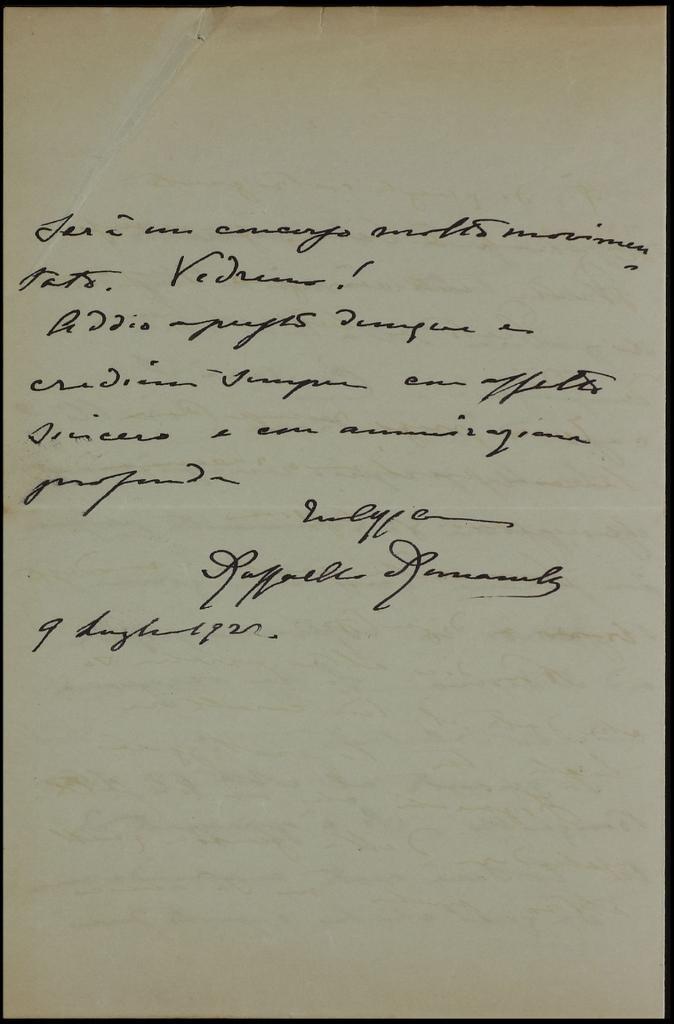 Sarà un concorso molto movimen=
tato. Vedremo!
Addio a presto dunque e
credimi sempre con affetto
sincero e con ammirazione
profonda
Raffaello Romanelli
9 Luglio 1922.